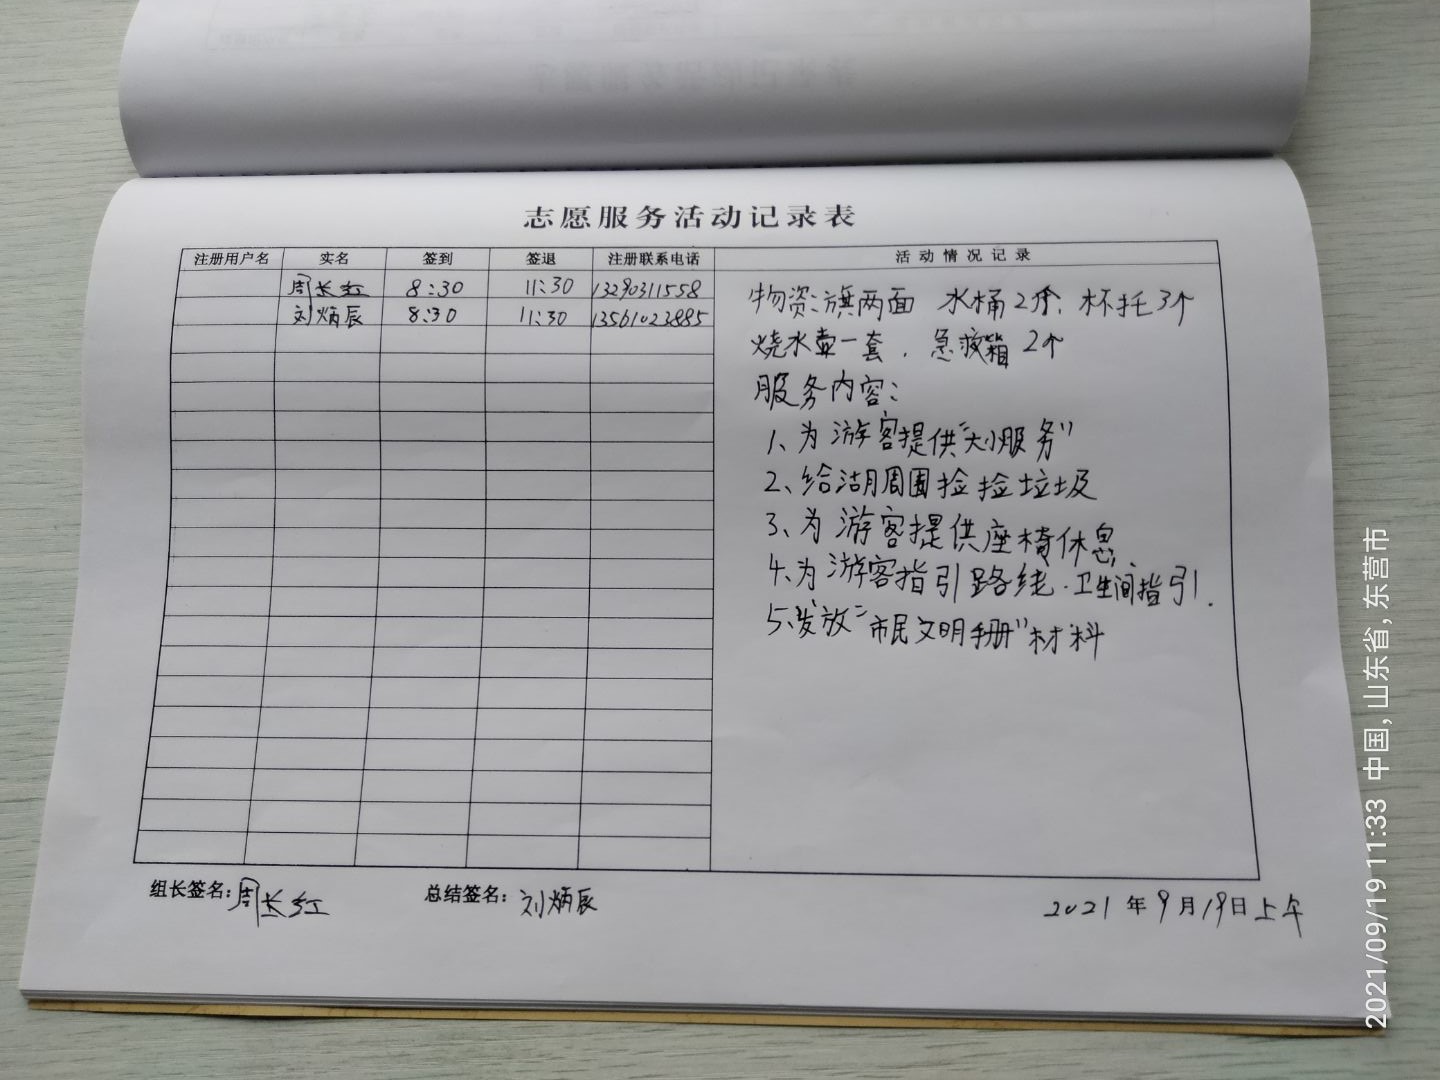 志愿服务活动记录表
注册用户名 实名 签到 签退 注册联系电话 活动情况记录
周长红 8:30 11:30 13290311558
刘炳辰 8:30 11:30 13561023885
物资:旗两面 水桶2个、杯托3个
烧水壶一套、急救箱2个
服务内容:
1、为游客提供"大小服务"
2、给湖周围捡捡垃圾
3、为游客提供座椅休息、
4、为游客指引路线·卫生间指引.
5、发放"市民文明手册"材料
组长签名:周长红 总结签名:刘炳辰 2021年9月19日上午
2021/09/19 11:33 中国, 山东省, 东营市